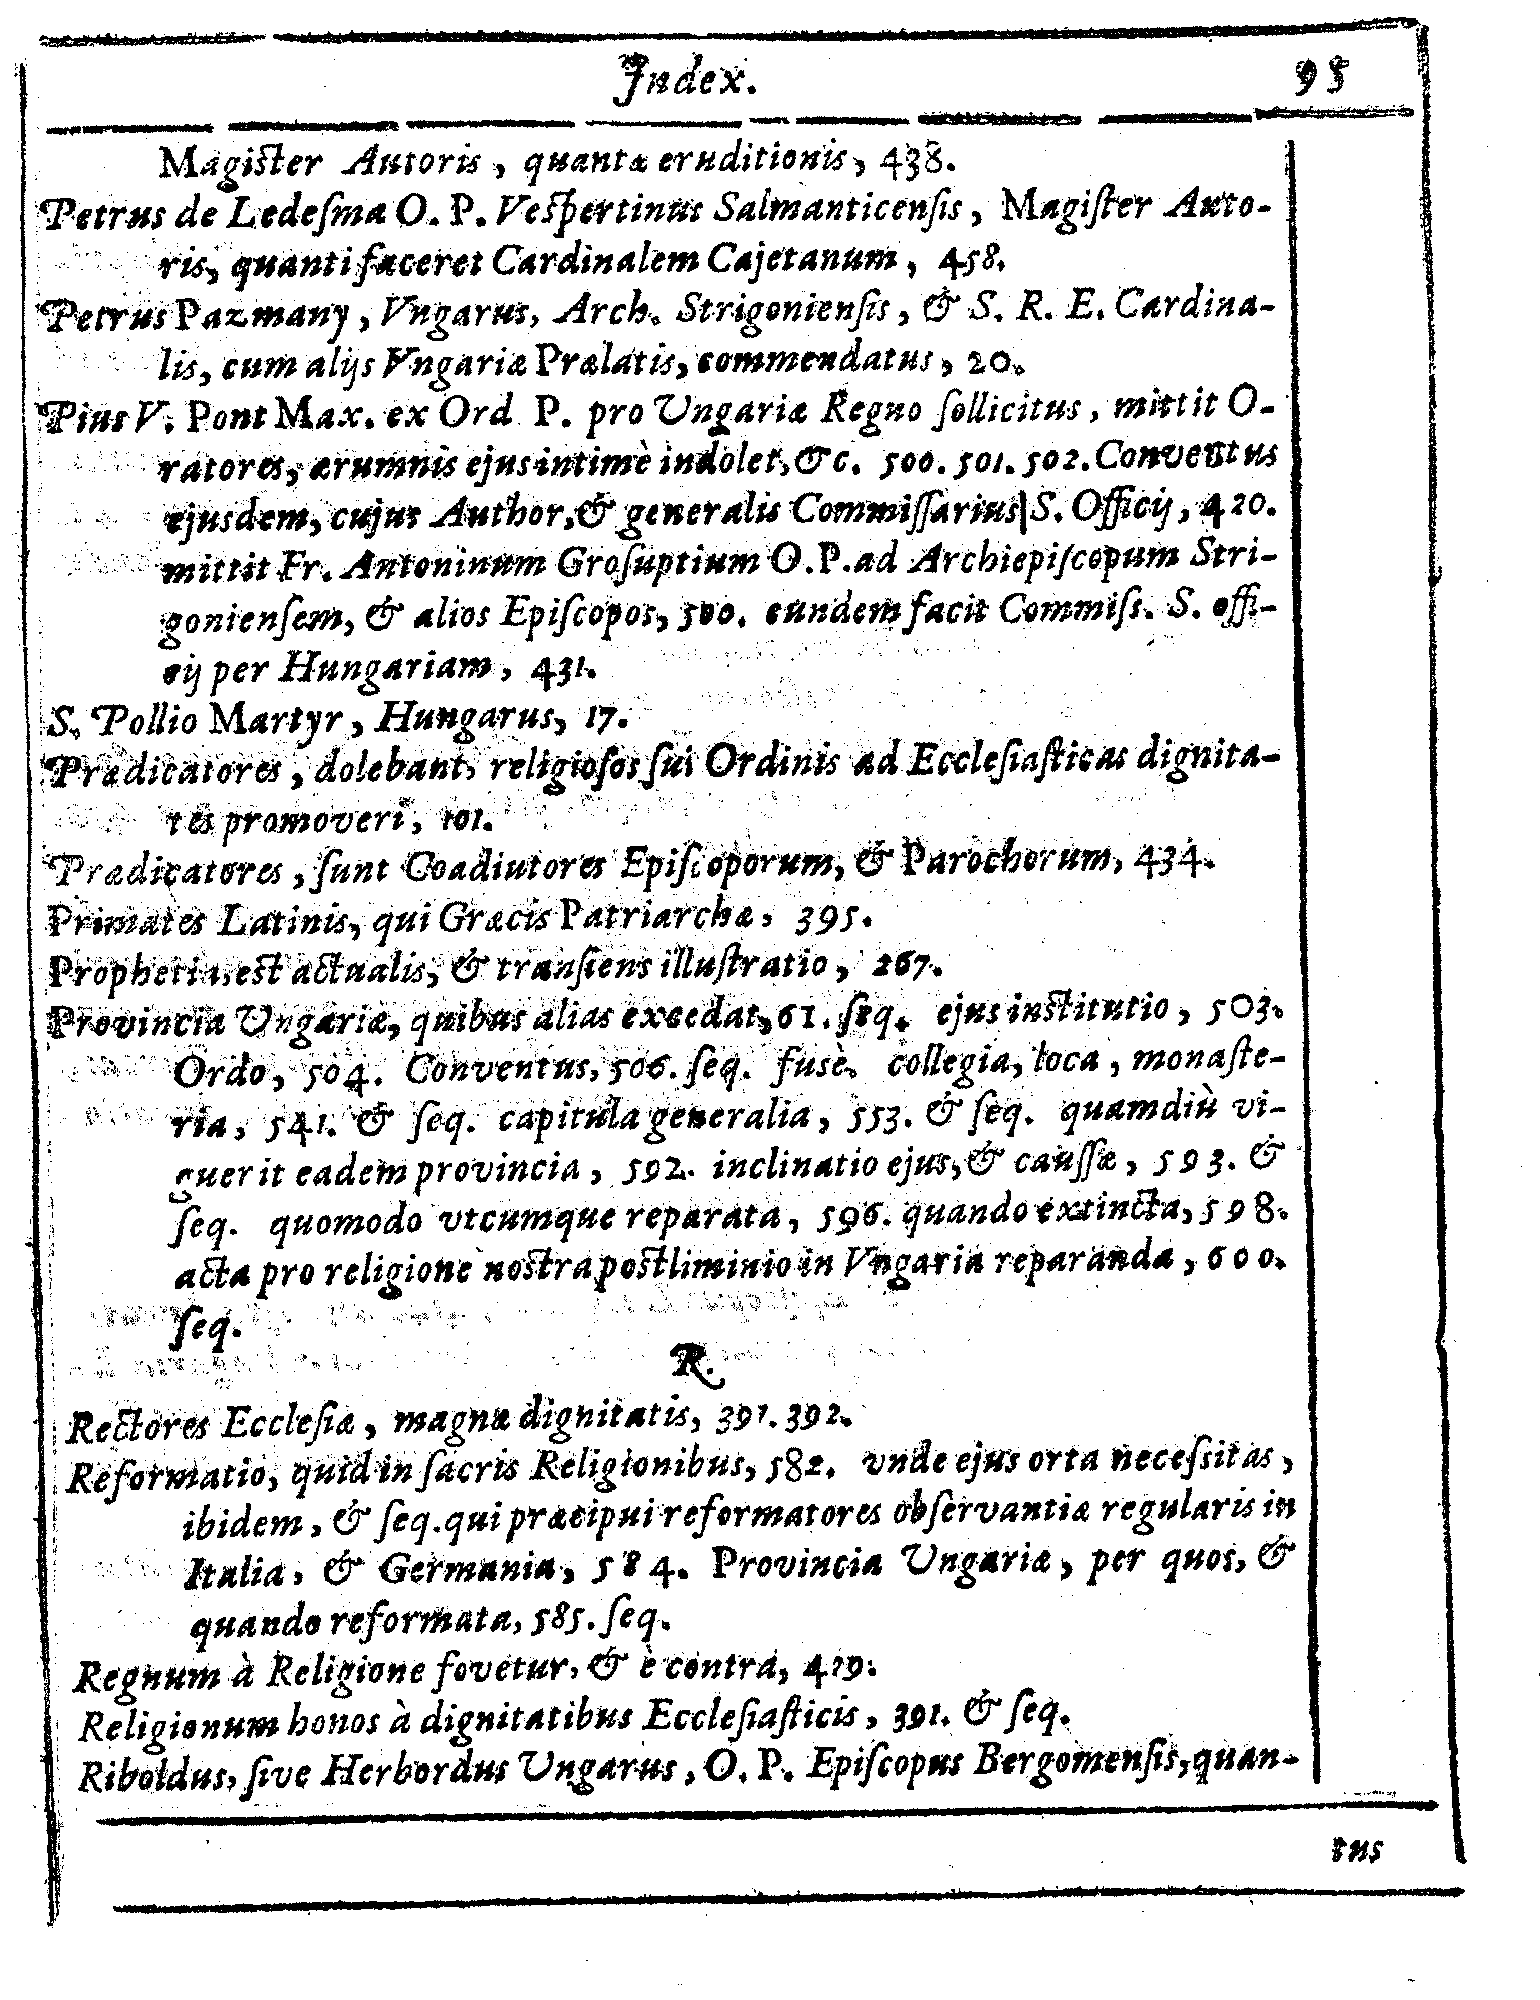 Index. 95
Magister Autoris, quantæ eruditionis, 438.
Petrus de Ledeſma O. P. Veſpertinus Salmanticenſis, Magiſter Auto-
ris, quanti faceret Cardinalem Cajetanum, 458.
Petrus Pazmany, Vngarus, Arch. Strigonienſis, & S. R. E. Cardina-
lis, cum alijs Vngariæ Prælatis, commendatus, 20.
Pius V. Pont Max. ex Ord P. pro Ungariæ Regno ſollicitus, mittit O-
ratores, ærumnis ejus intimè indolet, &c. 500. 501. 502. Conventus
ejusdem, cujus Author, & generalis Commiſſarius S. Officij, 420.
mittit Fr. Antoninum Groſuptium O.P. ad Archiepiſcopum Stri-
gonienſem, & alios Epiſcopos, 500. eundem facit Commiſs. S. offi-
cij per Hungariam, 431.
S. Pollio Martyr, Hungarus, 17.
Prædicatores, dolebant, religioſos ſui Ordinis ad Eccleſiaſticas dignita-
tes promoveri, 101.
Prædicatores, ſunt Coadiutores Epiſcoporum, & Parochorum, 434.
Primates Latinis, qui Græcis Patriarchæ, 395.
Prophetia, est actualis, & tranſiens illuſtratio, 267.
Provincia Ungariæ, quibus alias excedat, 61. ſeq. ejus institutio, 503.
Ordo, 504. Conventus, 506. ſeq. fusè. collegia, loca, monaſte-
ria, 541. & ſeq. capitula generalia, 553. & ſeq. quamdiù vi-
guerit eadem provincia, 592. inclinatio ejus, & cauſſæ, 593. &
ſeq. quomodo vtcumque reparata, 596. quando extincta, 598.
acta pro religione nostra postliminio in Vngaria reparanda, 600.
ſeq.
R.
Rectores Eccleſiæ, magnæ dignitatis, 391. 392.
Reformatio, quid in ſacris Religionibus, 582. vnde ejus orta neceſsitas,
ibidem, & ſeq. qui præcipui reformatores obſervantiæ regularis in
Italia, & Germania, 584. Provincia Ungariæ, per quos, &
quando reformata, 585. ſeq.
Regnum à Religione fovetur, & è contra, 419.
Religionum honos à dignitatibus Eccleſiaſticis, 391. & ſeq.
Riboldus, ſive Herbordus Ungarus, O. P. Epiſcopus Bergomenſis, quan-
tus